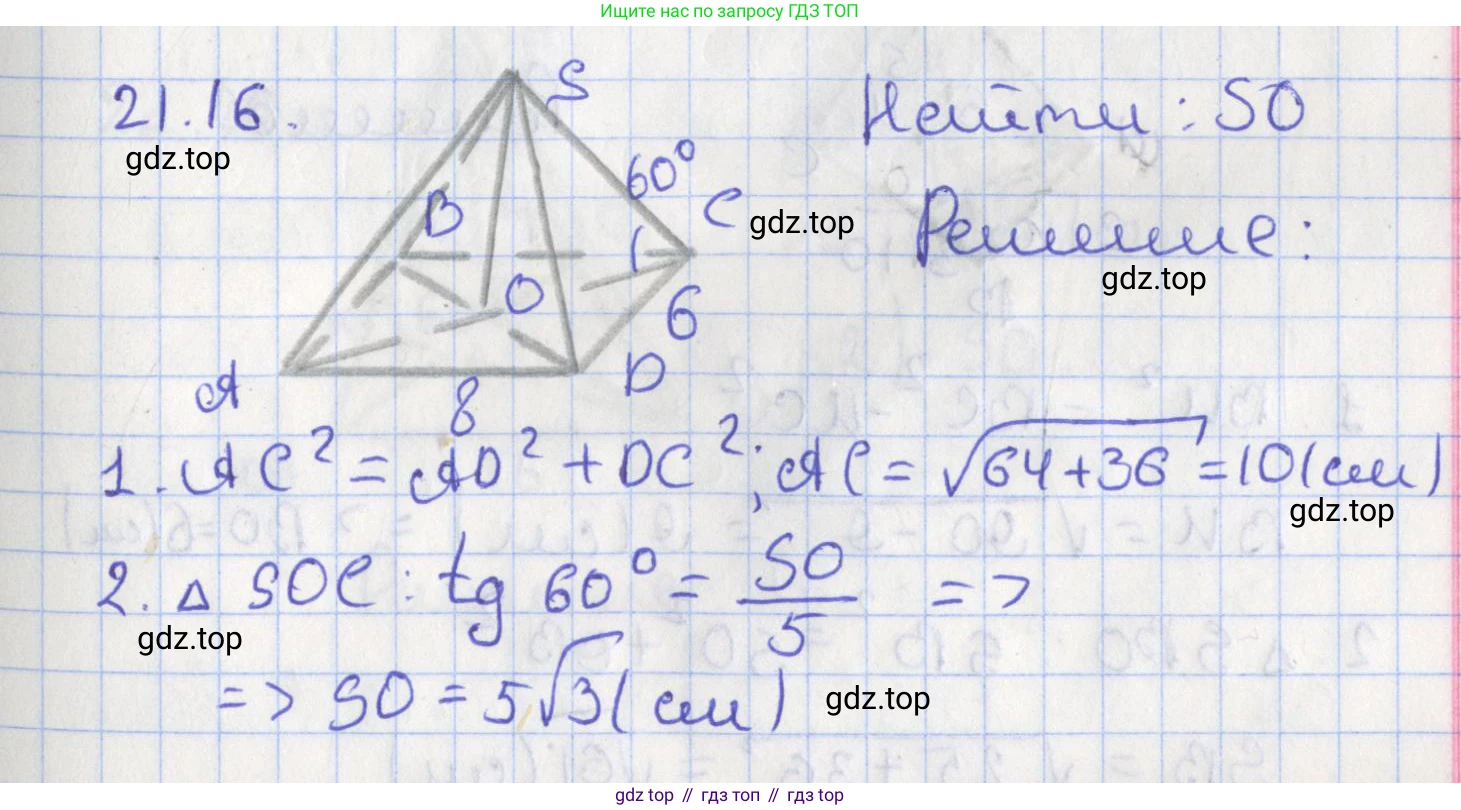 Ищите нас по запросу ГДЗ ТОП
21.16.
gdz.top
S
60°
B
C
O
6
A
D
8
Найти: SO
gdz.top
Решение:
gdz.top
1. AC² = AD² + DC²; AC = √64+36 = 10 (см)
gdz.top
2. △ SOC: tg 60° = SO/5 =>
gdz.top
=> SO = 5√3 (см)
gdz.top
gdz top // гдз топ // гдз top